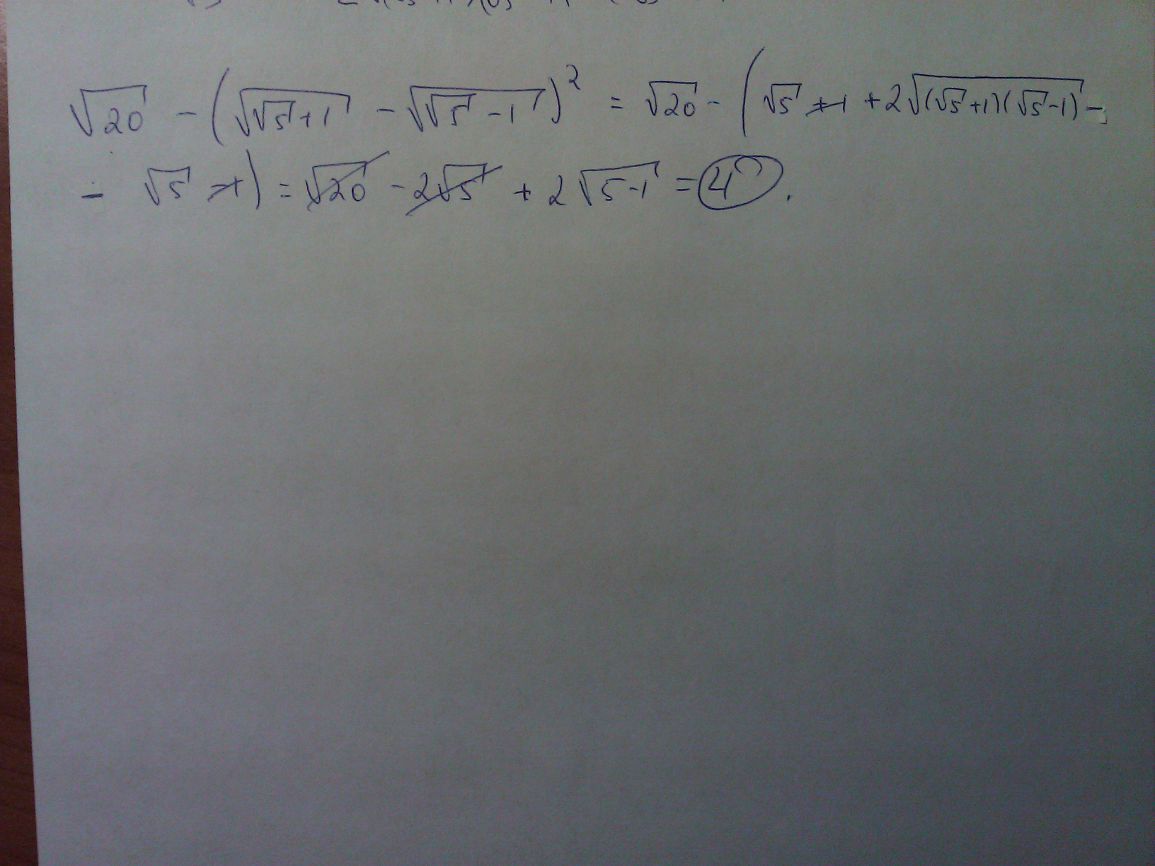 √20 - (√(√5+1) - √(√5-1))² = √20 - (√5 +1 + 2√((√5+1)(√5-1)) -
- √5 -1) = √20 - 2√5 + 2√(5-1) = 4.